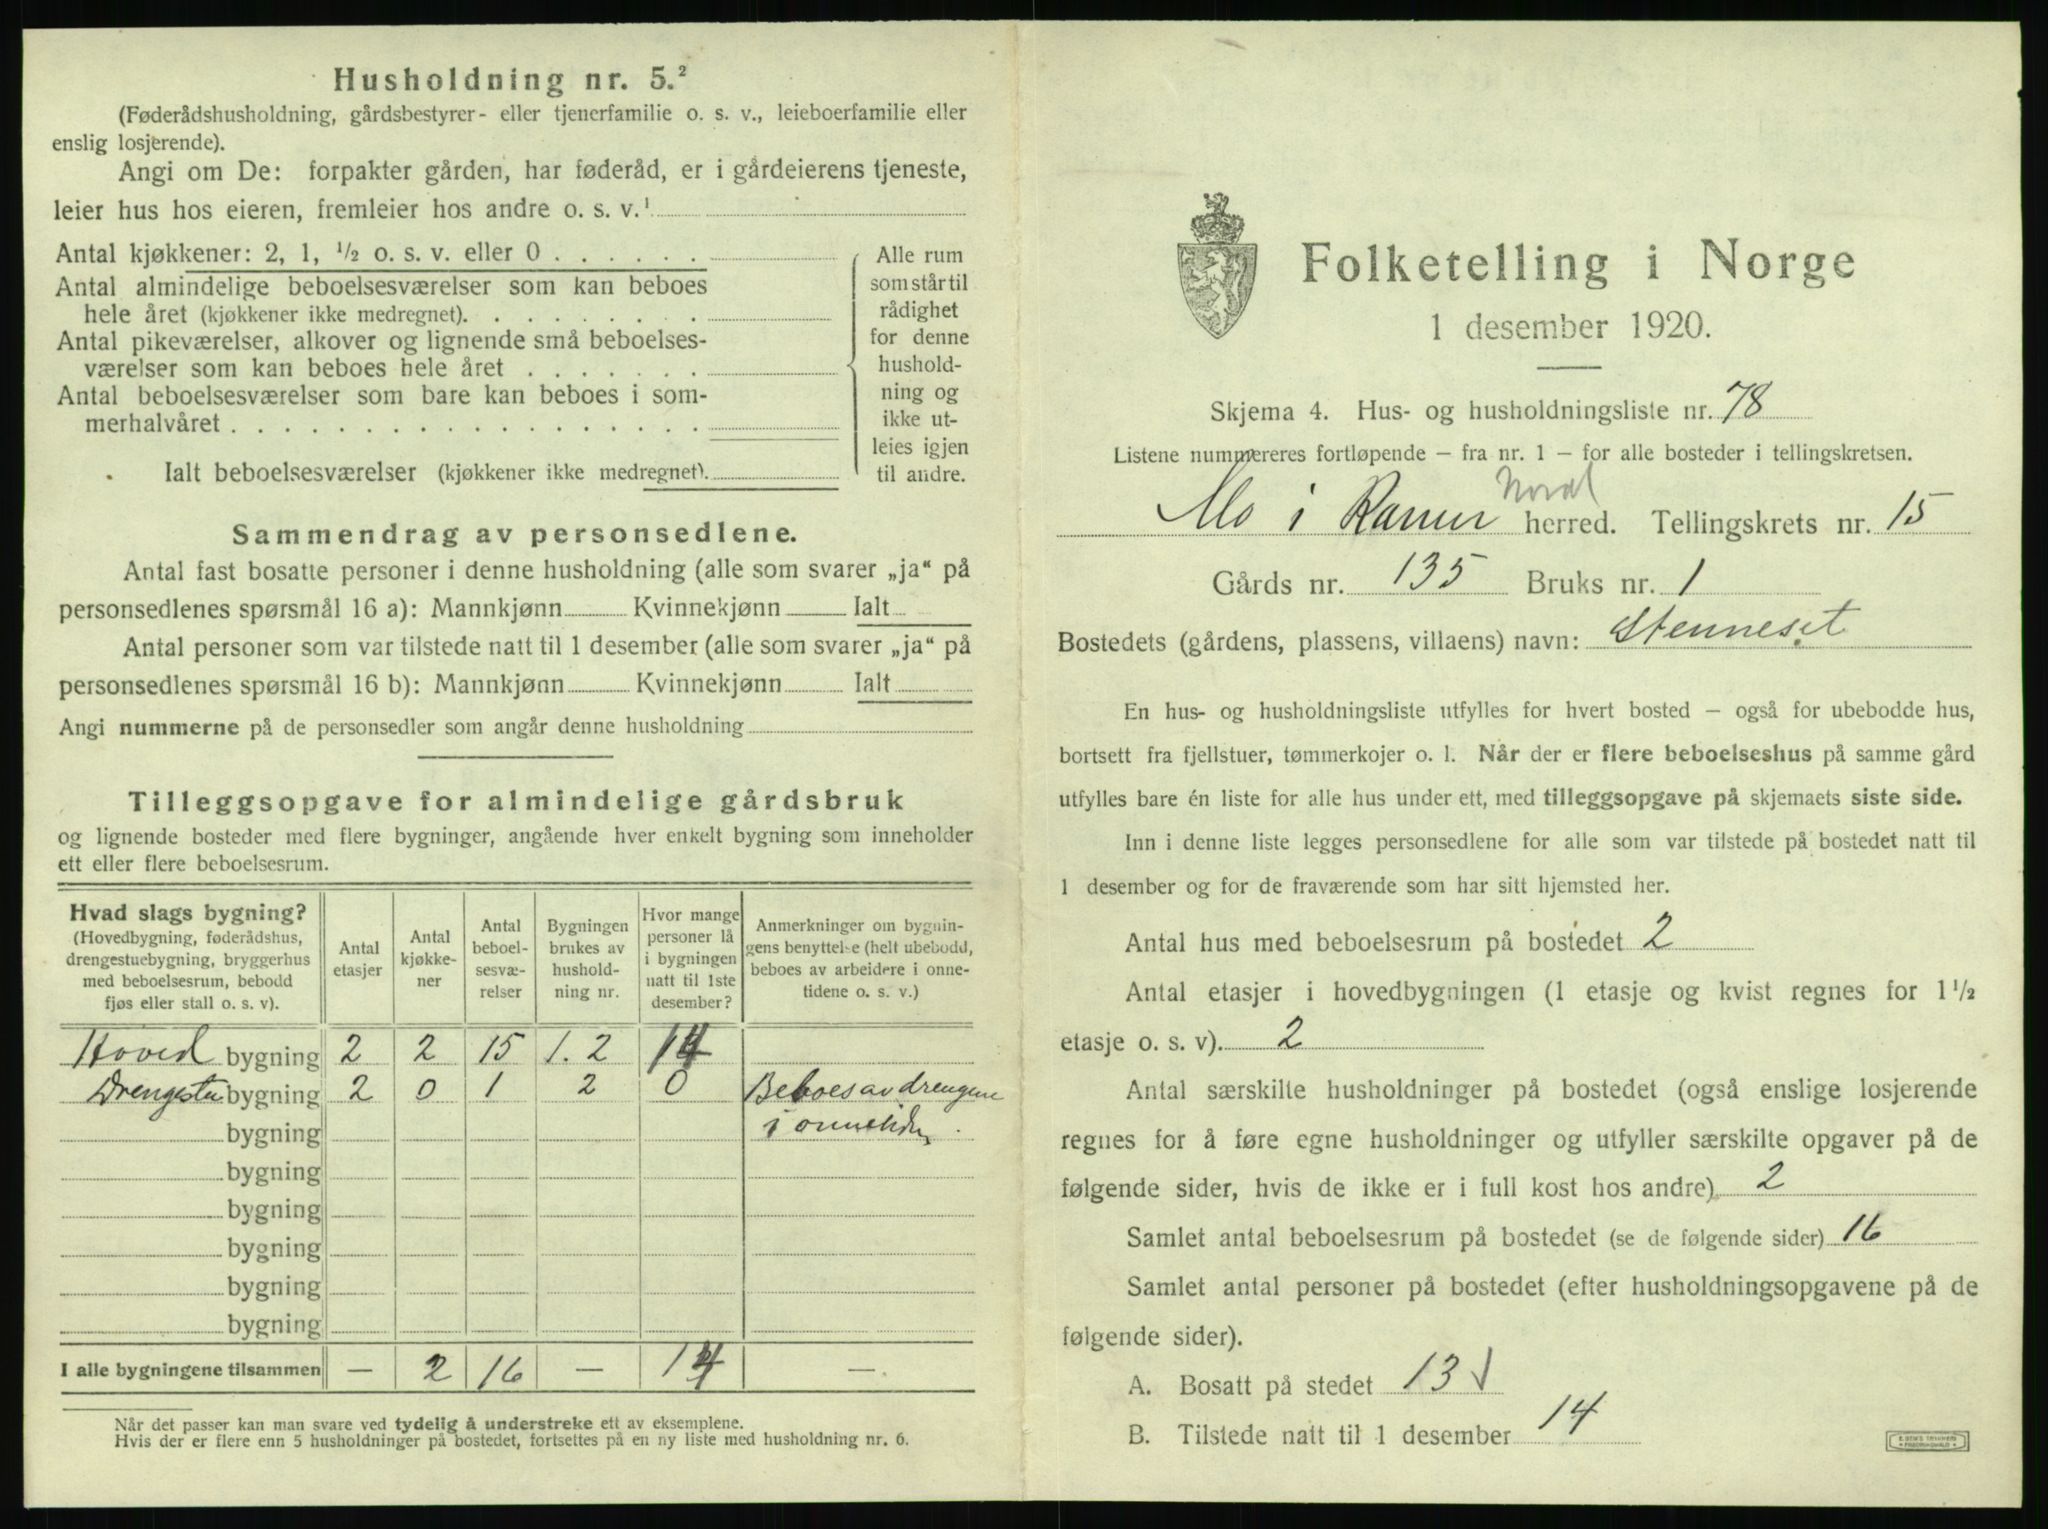 Husholdning nr. 5.²
(Føderådshusholdning, gårdsbestyrer- eller tjenerfamilie o. s. v., leieboerfamilie eller
enslig losjerende).
Angi om De: forpakter gården, har føderåd, er i gårdeierens tjeneste,
leier hus hos eieren, fremleier hos andre o. s. v.¹
Antal kjøkkener: 2, 1, ½ o. s. v. eller 0 . . . . . .
Antal almindelige beboelsesværelser som kan beboes
hele året (kjøkkener ikke medregnet). . . . . . . . .
Antal pikeværelser, alkover og lignende små beboelses-
værelser som kan beboes hele året . . . . . . .
Antal beboelsesværelser som bare kan beboes i som-
merhalvåret . . . . . . . . . . . . . . . . . .
Ialt beboelsesværelser (kjøkkener ikke medregnet).
Alle rum
som står til
rådighet
for denne
hushold-
ning og
ikke ut-
leies igjen
til andre.
Sammendrag av personsedlene.
Antal fast bosatte personer i denne husholdning (alle som svarer „ja“ på
personsedlenes spørsmål 16 a): Mannkjønn Kvinnekjønn Ialt
Antal personer som var tilstede natt til 1 desember (alle som svarer „ja“ på
personsedlenes spørsmål 16 b): Mannkjønn Kvinnekjønn Ialt
Angi nummerne på de personsedler som angår denne husholdning
Tilleggsopgave for almindelige gårdsbruk
og lignende bosteder med flere bygninger, angående hver enkelt bygning som inneholder
ett eller flere beboelsesrum.
Hvad slags bygning?
(Hovedbygning, føderådshus,
drengestuebygning, bryggerhus
med beboelsesrum, bebodd
fjøs eller stall o. s. v).
Antal
etasjer
Antal
kjøkke-
ner
Antal
beboel-
sesvæ-
relser
Bygningen
brukes av
hushold-
ning nr.
Hvor mange
personer lå
i bygningen
natt til 1ste
desember?
Anmerkninger om bygnin-
gens benyttelse (helt ubebodd,
beboes av arbeidere i onne-
tidene o. s. v.)
Hoved bygning 2 2 15 1. 2 14
Drengestu bygning 2 0 1 2 0 Beboes av drengene
bygning i onnetiden.
bygning
bygning
bygning
bygning
bygning
I alle bygningene tilsammen — 2 16 — 14 —
Når det passer kan man svare ved tydelig å understreke ett av eksemplene.
Hvis der er flere enn 5 husholdninger på bostedet, fortsettes på en ny liste med husholdning nr. 6.
Folketelling i Norge
1 desember 1920.
Skjema 4. Hus- og husholdningsliste nr. 78
Listene nummereres fortløpende – fra nr. 1 – for alle bosteder i tellingskretsen.
Nord
Mo i Ranen herred. Tellingskrets nr. 15
Gårds nr. 135 Bruks nr. 1
Bostedets (gårdens, plassens, villaens) navn: Stenneset
En hus- og husholdningsliste utfylles for hvert bosted – også for ubebodde hus,
bortsett fra fjellstuer, tømmerkojer o. l. Når der er flere beboelseshus på samme gård
utfylles bare én liste for alle hus under ett, med tilleggsopgave på skjemaets siste side.
Inn i denne liste legges personsedlene for alle som var tilstede på bostedet natt til
1 desember og for de fraværende som har sitt hjemsted her.
Antal hus med beboelsesrum på bostedet 2
Antal etasjer i hovedbygningen (1 etasje og kvist regnes for 1½
etasje o. s. v). 2
Antal særskilte husholdninger på bostedet (også enslige losjerende
regnes for å føre egne husholdninger og utfyller særskilte opgaver på de
følgende sider, hvis de ikke er i full kost hos andre) 2
Samlet antal beboelsesrum på bostedet (se de følgende sider) 16
Samlet antal personer på bostedet (efter husholdningsopgavene på de
følgende sider).
A. Bosatt på stedet 13
B. Tilstede natt til 1 desember 14